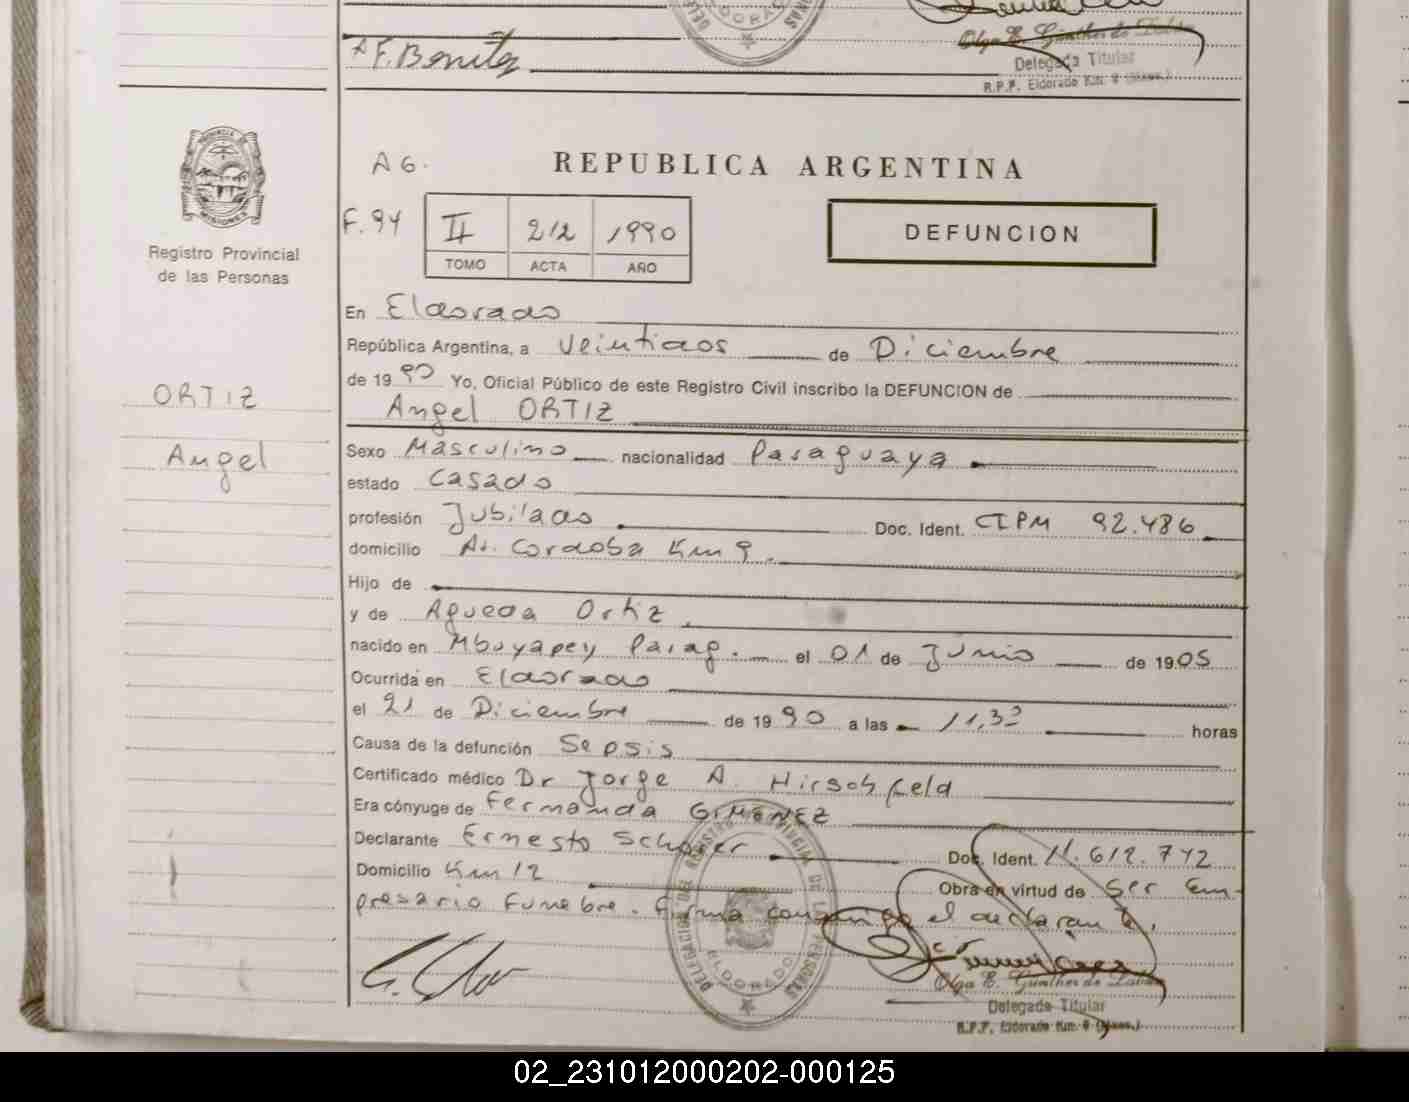 F. Benitez
Olga E. Günther de
Delegada Titular
R.P.F. Eldorado Km. 9 (Mnes.)
A 6.
REPUBLICA ARGENTINA
F. 94
II 212 1990
TOMO ACTA AÑO
DEFUNCION
PROVINCIA DE
MISIONES
Registro Provincial
de las Personas
En Eldorado
República Argentina, a Veintidos de Diciembre
de 1990 Yo, Oficial Público de este Registro Civil inscribo la DEFUNCION de
Angel ORTIZ
ORTIZ
Angel
Sexo Masculino nacionalidad Paraguaya
estado Casado
profesión Jubilado Doc. Ident. CIPM 92.486
domicilio Av. Cordoba Km 9.
Hijo de
y de Agueda Ortiz.
nacido en Mbuyapey Parag. el 01 de Junio de 1905
Ocurrida en Eldorado
el 21 de Diciembre de 1990 a las 11,30 horas
Causa de la defunción Sepsis
Certificado médico Dr Jorge A. Hirschfeld
Era cónyuge de Fernanda GIMENEZ
Declarante Ernesto Doc. Ident. 11.612.742
Domicilio Km 12 Obra en virtud de Ser Em-
presario Funebre. Firma conmigo el declarante.
DELEGACION DEL REGISTRO PROVINCIAL DE LAS PERSONAS
ELDORADO
Olga E. Günther de
Delegada Titular
R.P.F. Eldorado Km. 9 (Mnes.)
02_231012000202-000125